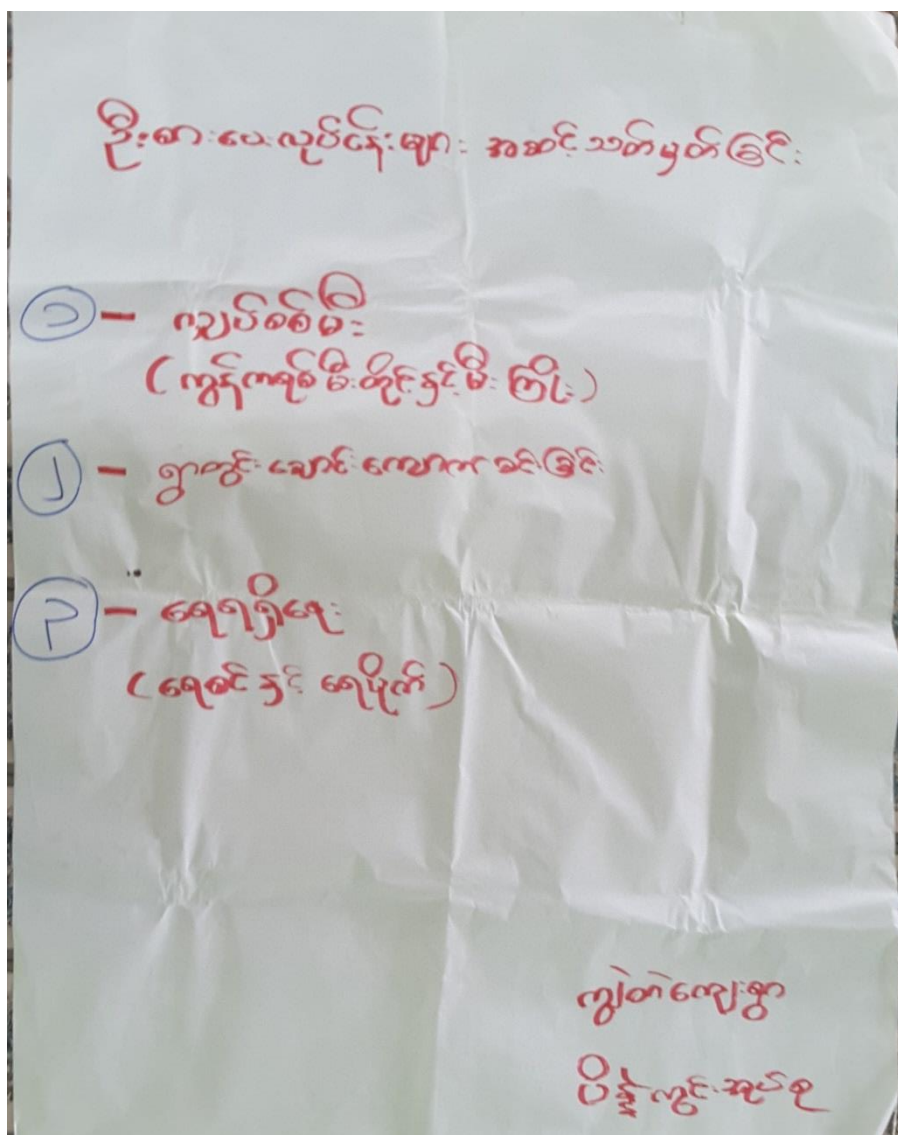 ဦးစားပေးလုပ်ငန်းများ အဆင့်သတ်မှတ်ခြင်း
၁ - လျှပ်စစ်မီး
(ကွန်ကရစ်မီးတိုင်နှင့်မီးကြိုး)
၂ - ရွာတွင်းလျှောင်းကျောက်ခင်းခြင်း
၃ - ရေရရှိရေး
(ရေစင်နှင့် ရေပိုက်)
ကျွဲတဲကျေးရွာ
ပိန္နဲကွင်းအုပ်စု